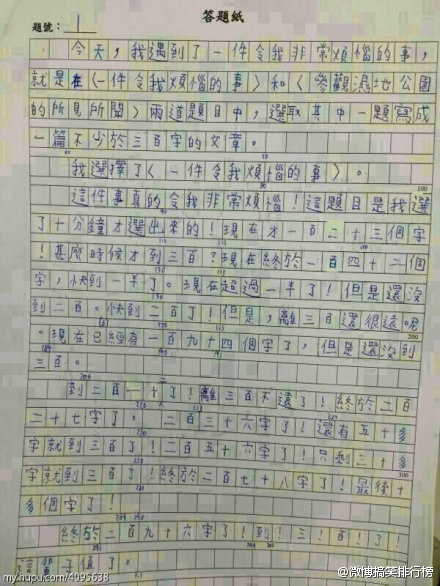 答題紙
題號：1
今天，我遇到了一件令我非常煩惱的事，
就是在〈一件令我煩惱的事〉和〈參觀濕地公園
的所見所聞〉兩道題目中，選取其中一題寫成
一篇不少於三百字的文章。
我選擇了〈一件令我煩惱的事〉。
這件事真的令我非常煩惱！這題目是我選
了十分鐘才選出來的！現在才一百二十三個字
！甚麼時候才到三百？現在終於一百四十二個
字，快到一半了。現在超過一半了！但是還沒
到二百。快到二百了！但是，離三百還很遠。
。現在已經有一百九十四個字了，但是還沒到
三百。
到二百一十了！離三百不遠了！終於二百
二十七字了。二百三十六字了！還有五十多
字就到三百了！二百五十六字了！只剩三十多
字就到三百了！終於二百七十八字了！最後十
多個字了！
終於二百九十六字了！到！三！百！了！
這輩子值了。
my.hupu.com/4095638
@微博搞笑排行榜